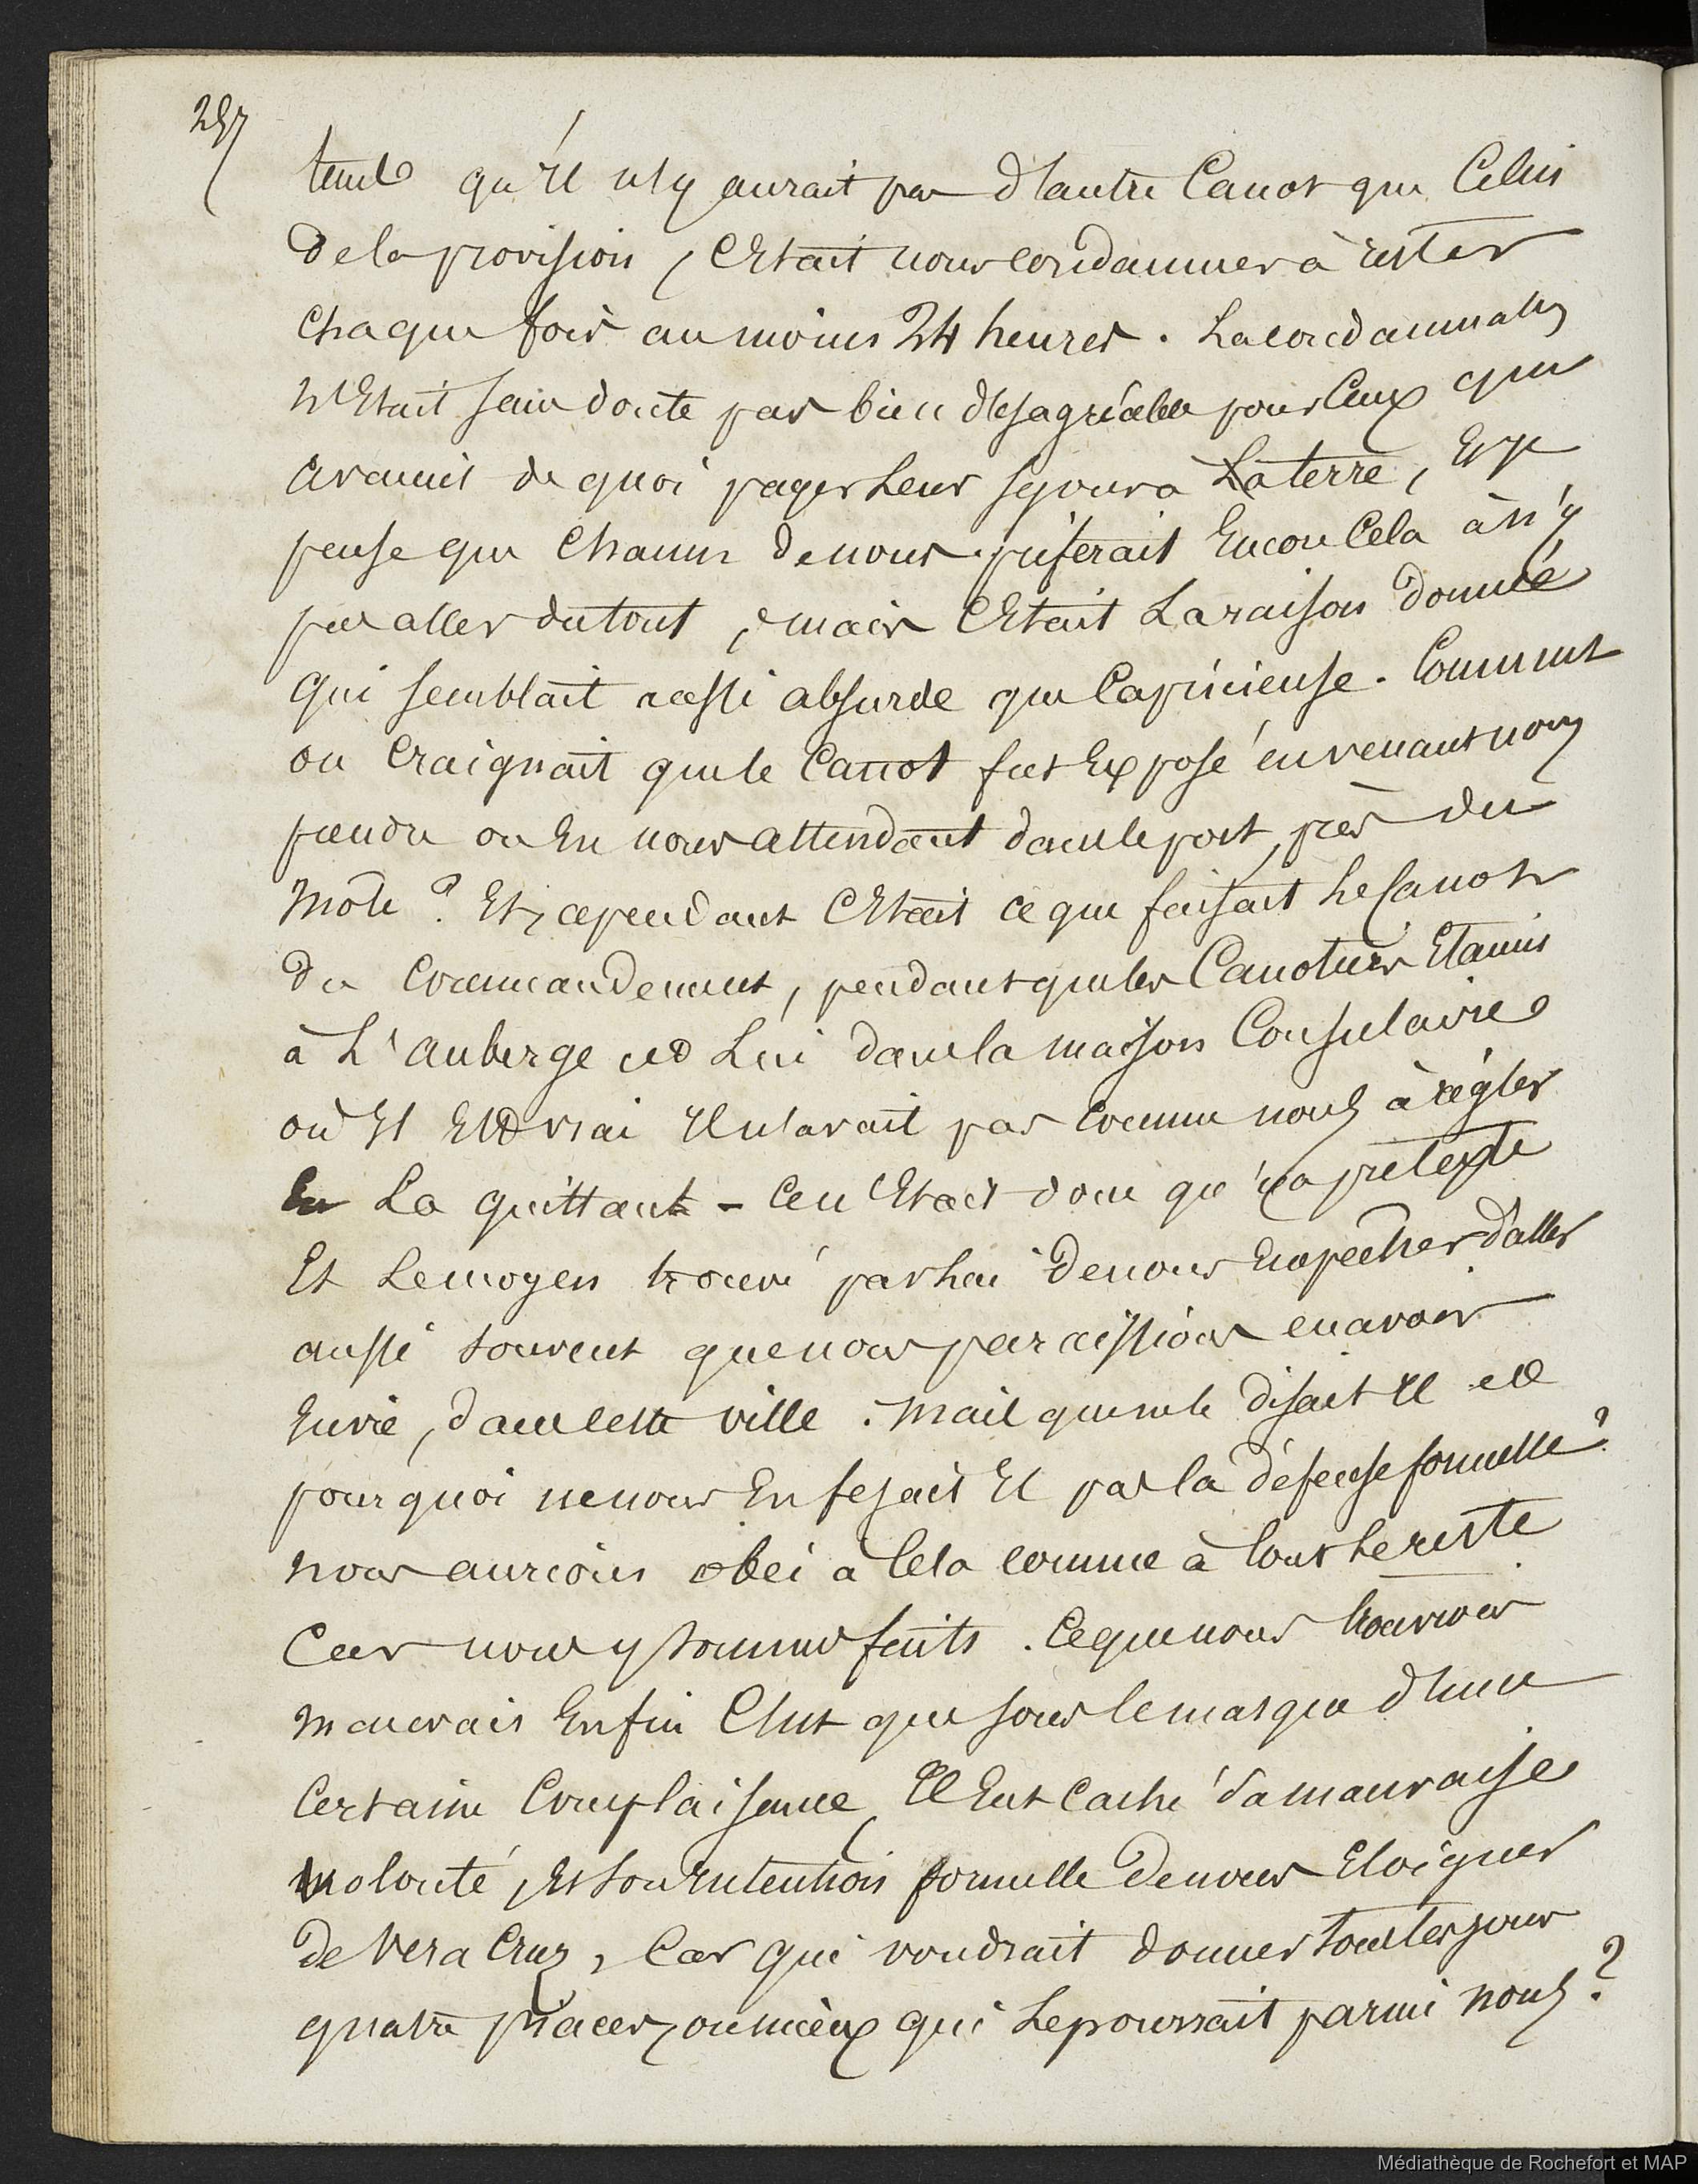 257
tendu qu'Il n'y aurait pas d'autre Canot que Celui
de la provision, C'Etait nous condamner à rester
chaque fois au moins 24 heures. La condamnation
n'Etait sans doute pas bien désagréable pour Ceux qui
avaient de quoi payer Leur séjour a La terre, Et je
pense que Chacun de nous préferait Encore Cela à n'y
pas aller du tout, mais C'Etait La raison donnée
qui semblait aussi absurde que Capricieuse. Comment
on Craignait que le Canot fut Exposé en venant nous
prendre ou En nous attendant dans le port, près du
Mole? Et cependant C'Etait ce que faisait Le Canot
du Commandement, pendant que les Canotiers Etaient
à L'auberge et Lui dans la maison Consulaire
où Il Est vrai Il n'avait pas comme nous à régler
En La quittant - Ce n'Etait donc qu'un prétexte
Et Le moyen trouvé par Lui de nous Empêcher d'aller
aussi souvent que nous paraissions en avoir
Envie, dans cette ville. Mais que ne le disait Il et
pourquoi ne nous En fesait Il pas la défense formelle?
nous aurions obéi à Cela comme à tout Le reste
Car nous y sommes faits. Ce que nous trouvions
mauvais Enfin C'est que sous le masque d'une
Certaine Complaisance, Il Eut Caché sa mauvaise
volonté, Et son Intention formelle de nous Eloigner
de Vera Cruz, Car qui voudrait donner tous les jours
quatre piacres, ou mieux qui Le pourrait parmi nous?
Médiathèque de Rochefort et MAP